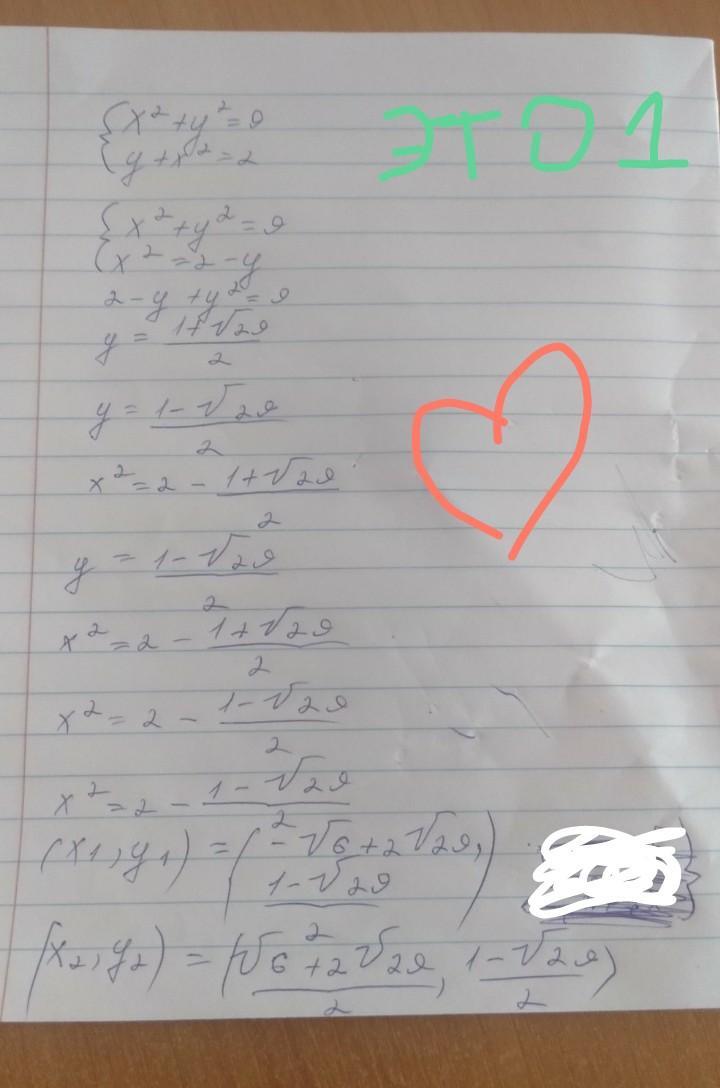 {x² + y² = 9
{y + x² = 2
ЭТО 1
{x² + y² = 9
{x² = 2 - y
2 - y + y² = 9
y = (1 + √29)/2
y = (1 - √29)/2
x² = 2 - (1 + √29)/2
y = (1 - √29)/2
x² = 2 - (1 + √29)/2
x² = 2 - (1 - √29)/2
x² = 2 - (1 - √29)/2
(x₁, y₁) = (-√6 + 2√29,
(1 - √29)/2)
(x₂, y₂) = ((√6 + 2√29)/2, (1 - √29)/2)